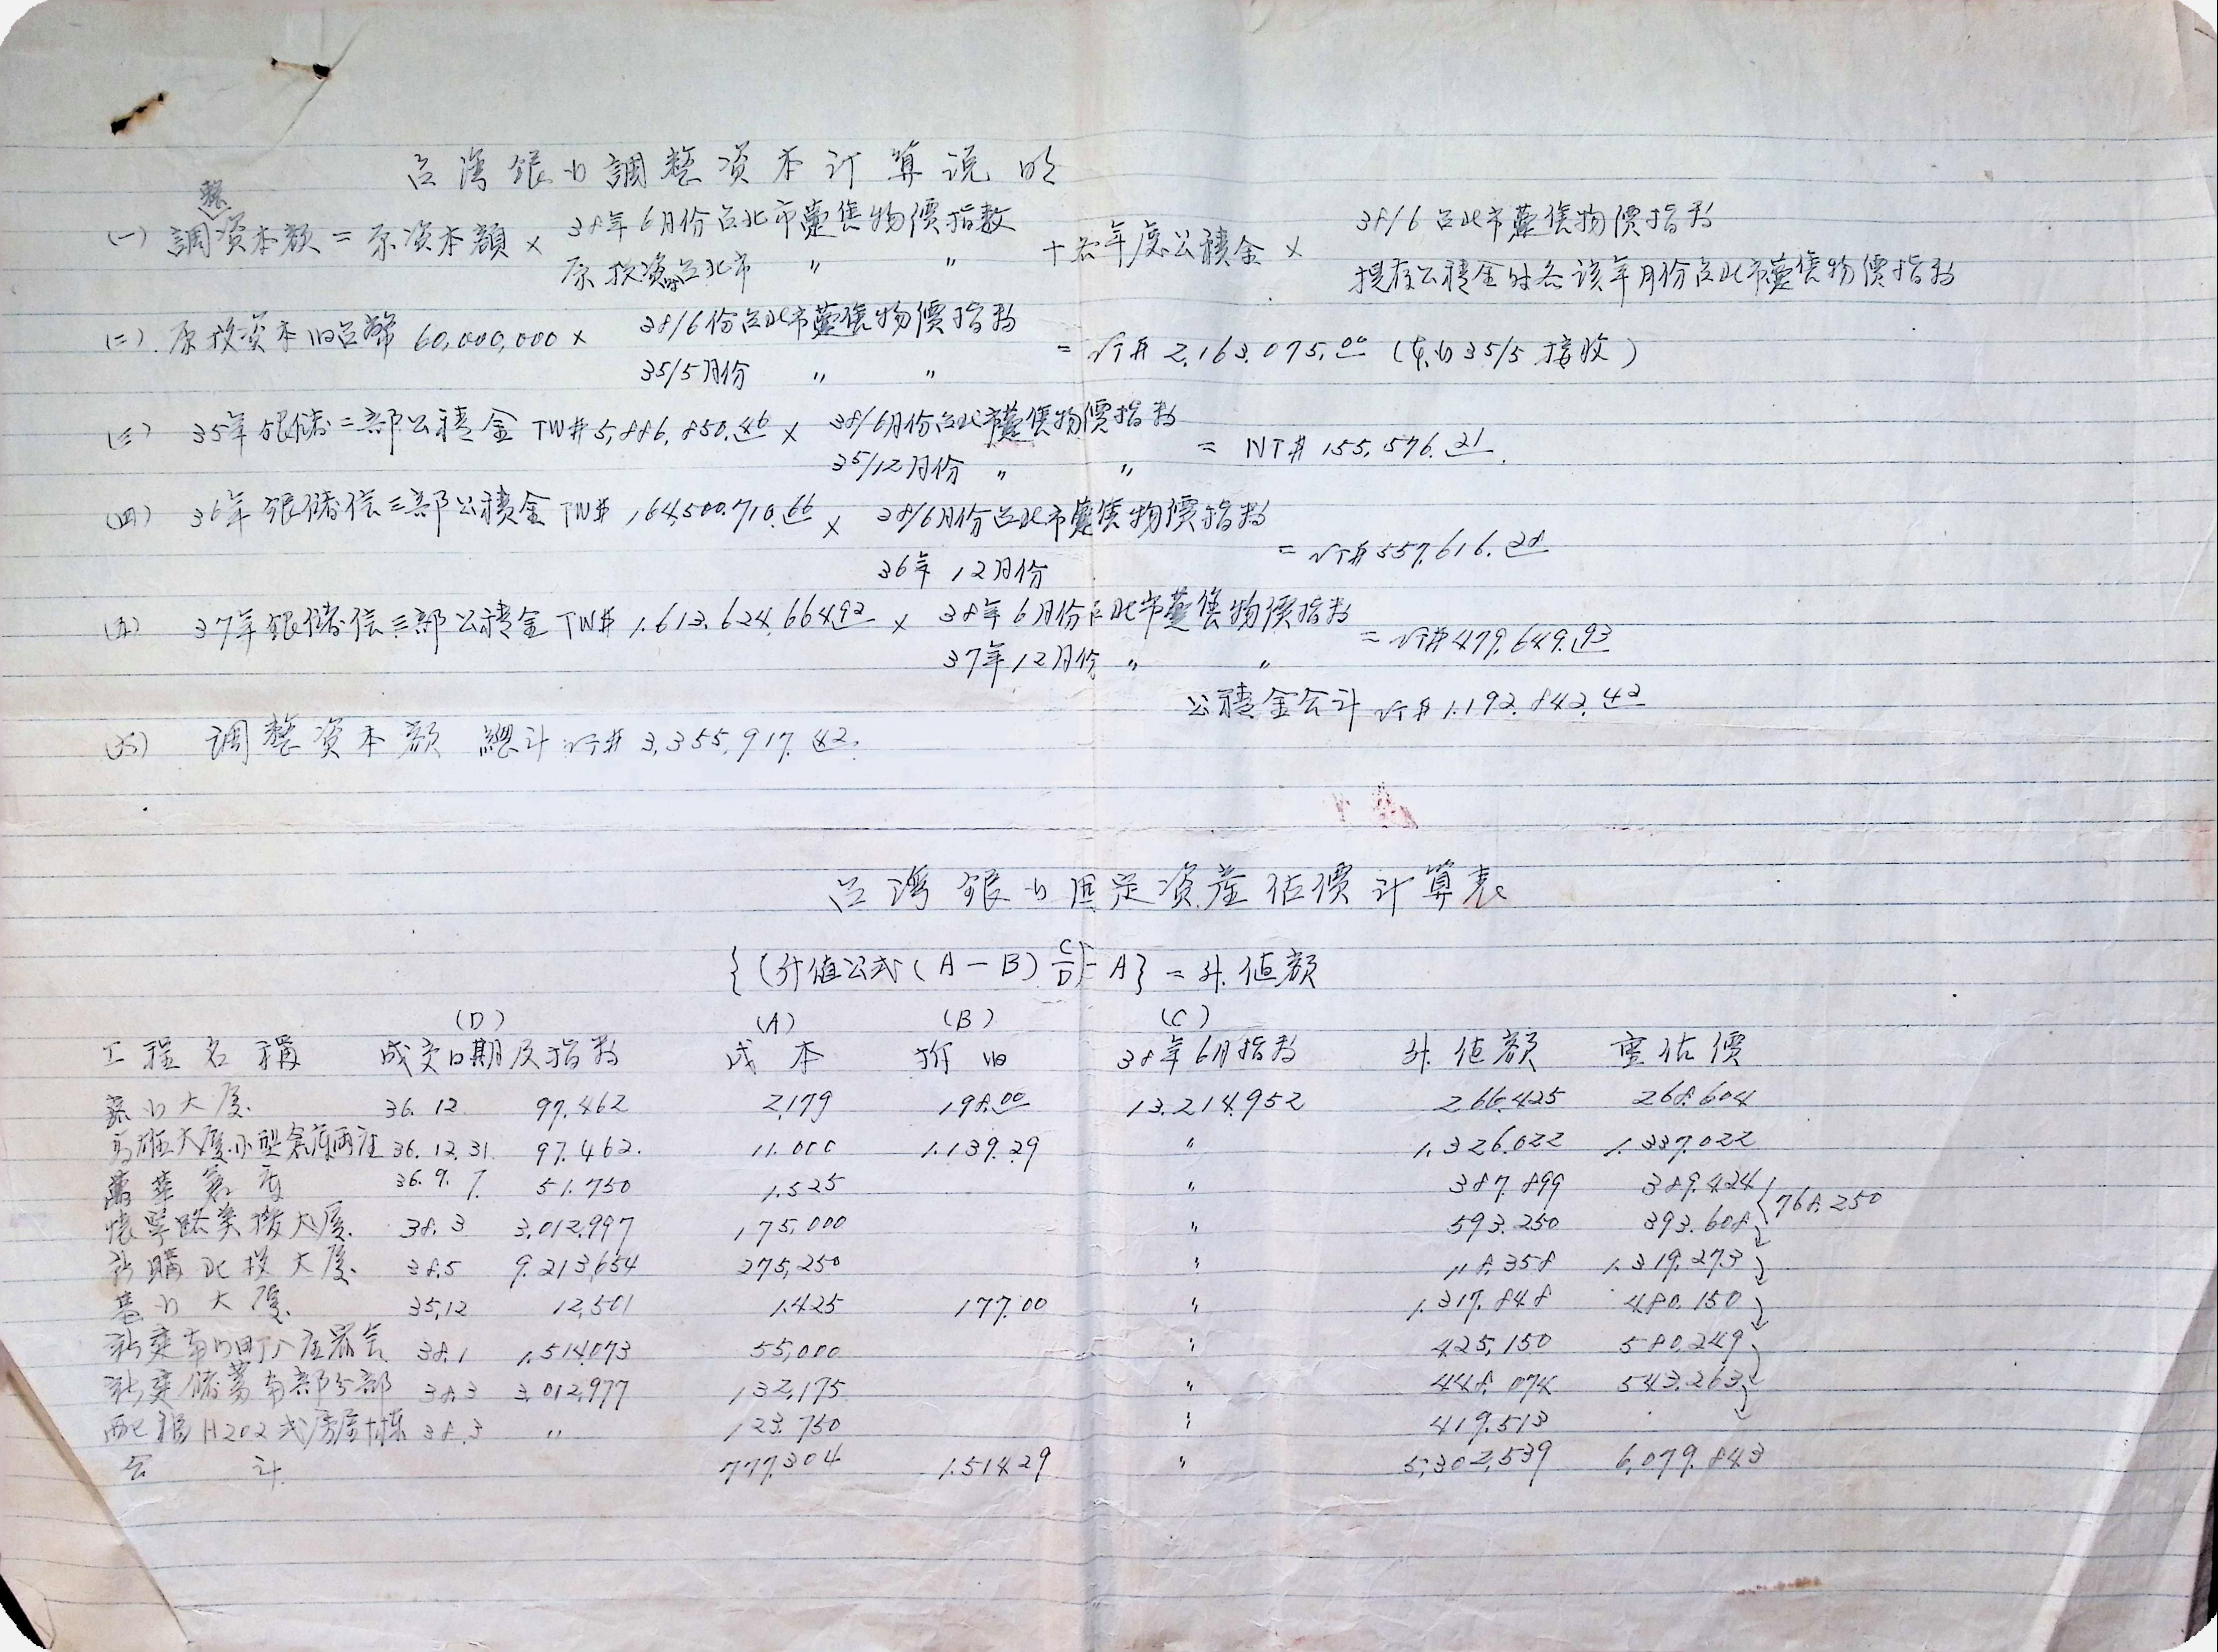 台灣銀行調整資本計算説明
(一) 調整資本額 = 原資本額 × 38年6月份台北市躉售物價指數 / 原投資台北市 〃 〃 + 各年度公積金 × 38/6 台北市躉售物價指数 / 提存公積金時各該年月份台北市躉售物價指数
(二). 原投資本旧台幣 60,000,000 × 38/6份台北市躉售物價指数 / 35/5月份 〃 〃 = NT$ 2,163,075.00 (本行35/5接收)
(三) 35年銀儲二部公積金 TW$ 5,886,850.46 × 38/6月份台北市躉售物價指数 / 35/12月份 〃 〃 = NT$ 155,576.21
(四) 36年銀儲信三部公積金 TW$ 164,500,710.66 × 38/6月份台北市躉售物價指数 / 36年12月份 = NT$ 557,616.28
(五) 37年銀儲信三部公積金 TW$ 1,613,624,664.92 × 38年6月份台北市躉售物價指数 / 37年12月份 〃 〃 = NT$ 479,649.93
公積金合計 NT$ 1,192,842.42
(六) 調整資本額 總計 NT$ 3,355,917.42.
台灣銀行固定資產估價計算表
{(升值公式(A-B) C/D)-A} = 升值額
(D) (A) (B) (C)
工程名稱 成交日期及指数 成本 折旧 38年6月指数 升值額 重估價
行大廈. 36.12. 97,462 2,179 198.00 13,214,952 266,425 268,604
高雄大廈.小型倉庫兩座 36.12.31. 97,462. 11,000 1,139.29 〃 1,326,022 1,337,022
萬華倉庫 36.9.7. 51,750 1,525 〃 387,899 389,424
懷寧路美援大廈. 38.3 3,012,997 175,000 〃 593,250 393,608 768,250
新購北投大廈. 38.5 9,213,654 275,250 〃 118,358 1,319,273
基行大廈. 35,12 12,501 1,425 177.00 〃 1,317,848 480,150
新建南門町八座宿舍 38.1 1,514,073 55,000 〃 425,150 580,249
新建儲蓄南部分部 38.3 3,012,977 132,175. 〃 448,074 543,263
配銷H202式房屋十棟 38.3 〃 123,750 〃 419,513
合計. 777,304 1,514.29 〃 5,302,539 6,079,843